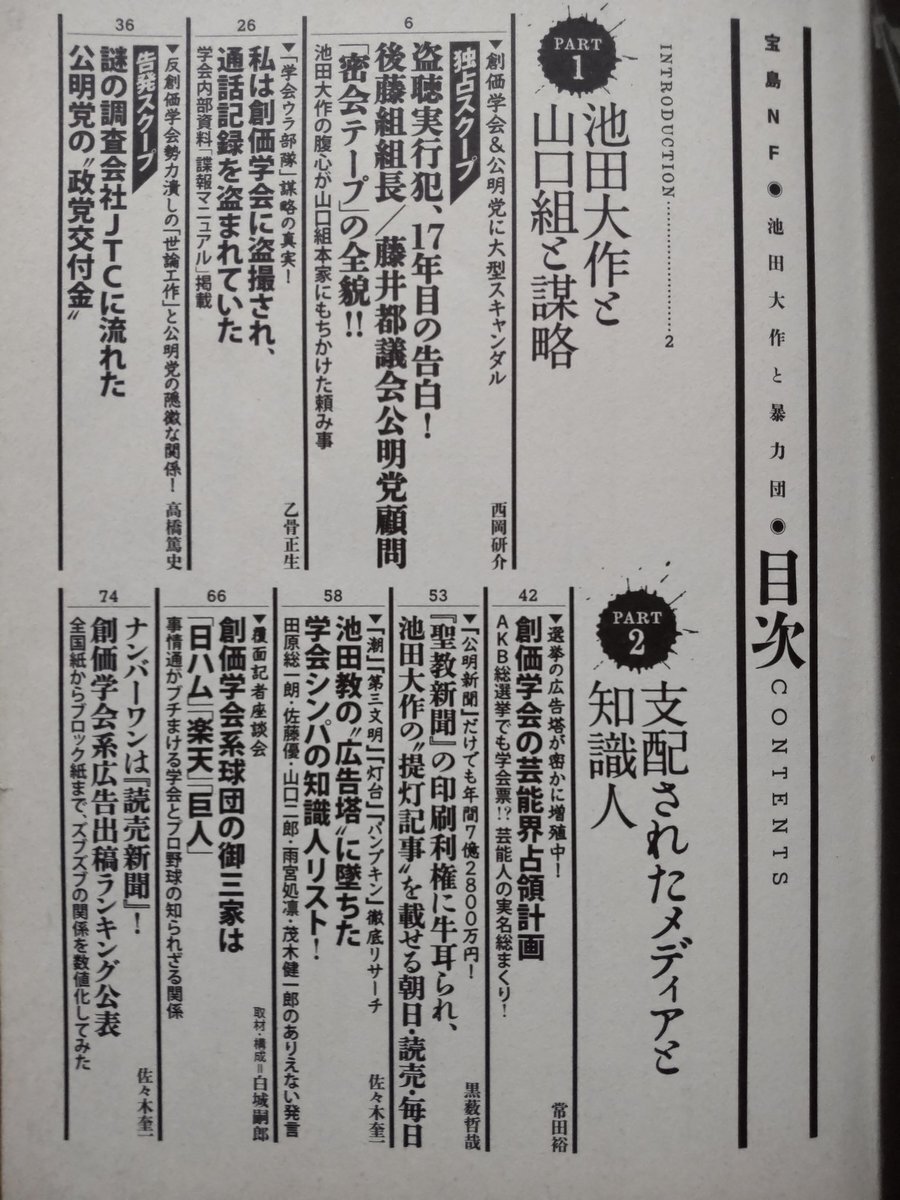 宝島NF◉池田大作と暴力団◉目次CONTENTS
INTRODUCTION……………………2
PART 1
池田大作と
山口組と謀略
6
▼創価学会&公明党に大型スキャンダル
独占スクープ
盗聴実行犯、17年目の告白!
後藤組組長/藤井都議会公明党顧問
「密会テープ」の全貌!!
池田大作の腹心が山口組本家にもちかけた頼み事
西岡研介
26
▼「学会ウラ部隊」謀略の真実!
私は創価学会に盗撮され、
通話記録を盗まれていた
学会内部資料「諜報マニュアル」掲載
乙骨正生
36
▼反創価学会勢力潰しの「世論工作」と公明党の隠微な関係!
告発スクープ
謎の調査会社JTCに流れた
公明党の〝政党交付金〟
高橋篤史
PART 2
支配されたメディアと
知識人
42
▼選挙の広告塔が密かに増殖中!
創価学会の芸能界占領計画
AKB総選挙でも学会票!? 芸能人の実名総まくり!
常田裕
53
▼「公明新聞」だけでも年間7億2800万円!
『聖教新聞』の印刷利権に牛耳られ、
池田大作の〝提灯記事〟を載せる朝日・読売・毎日
黒薮哲哉
58
▼「潮」「第三文明」「灯台」「パンプキン」徹底リサーチ
池田教の〝広告塔〟に墜ちた
学会シンパの知識人リスト!
田原総一朗・佐藤優・山口二郎・雨宮処凛・茂木健一郎のありえない発言
佐々木奎一
66
▼覆面記者座談会
創価学会系球団の御三家は
「日ハム」「楽天」「巨人」
事情通がブチまける学会とプロ野球の知られざる関係
取材・構成=白城嗣郎
74
ナンバーワンは『読売新聞』!
創価学会系広告出稿ランキング公表
全国紙からブロック紙まで、ズブズブの関係を数値化してみた
佐々木奎一